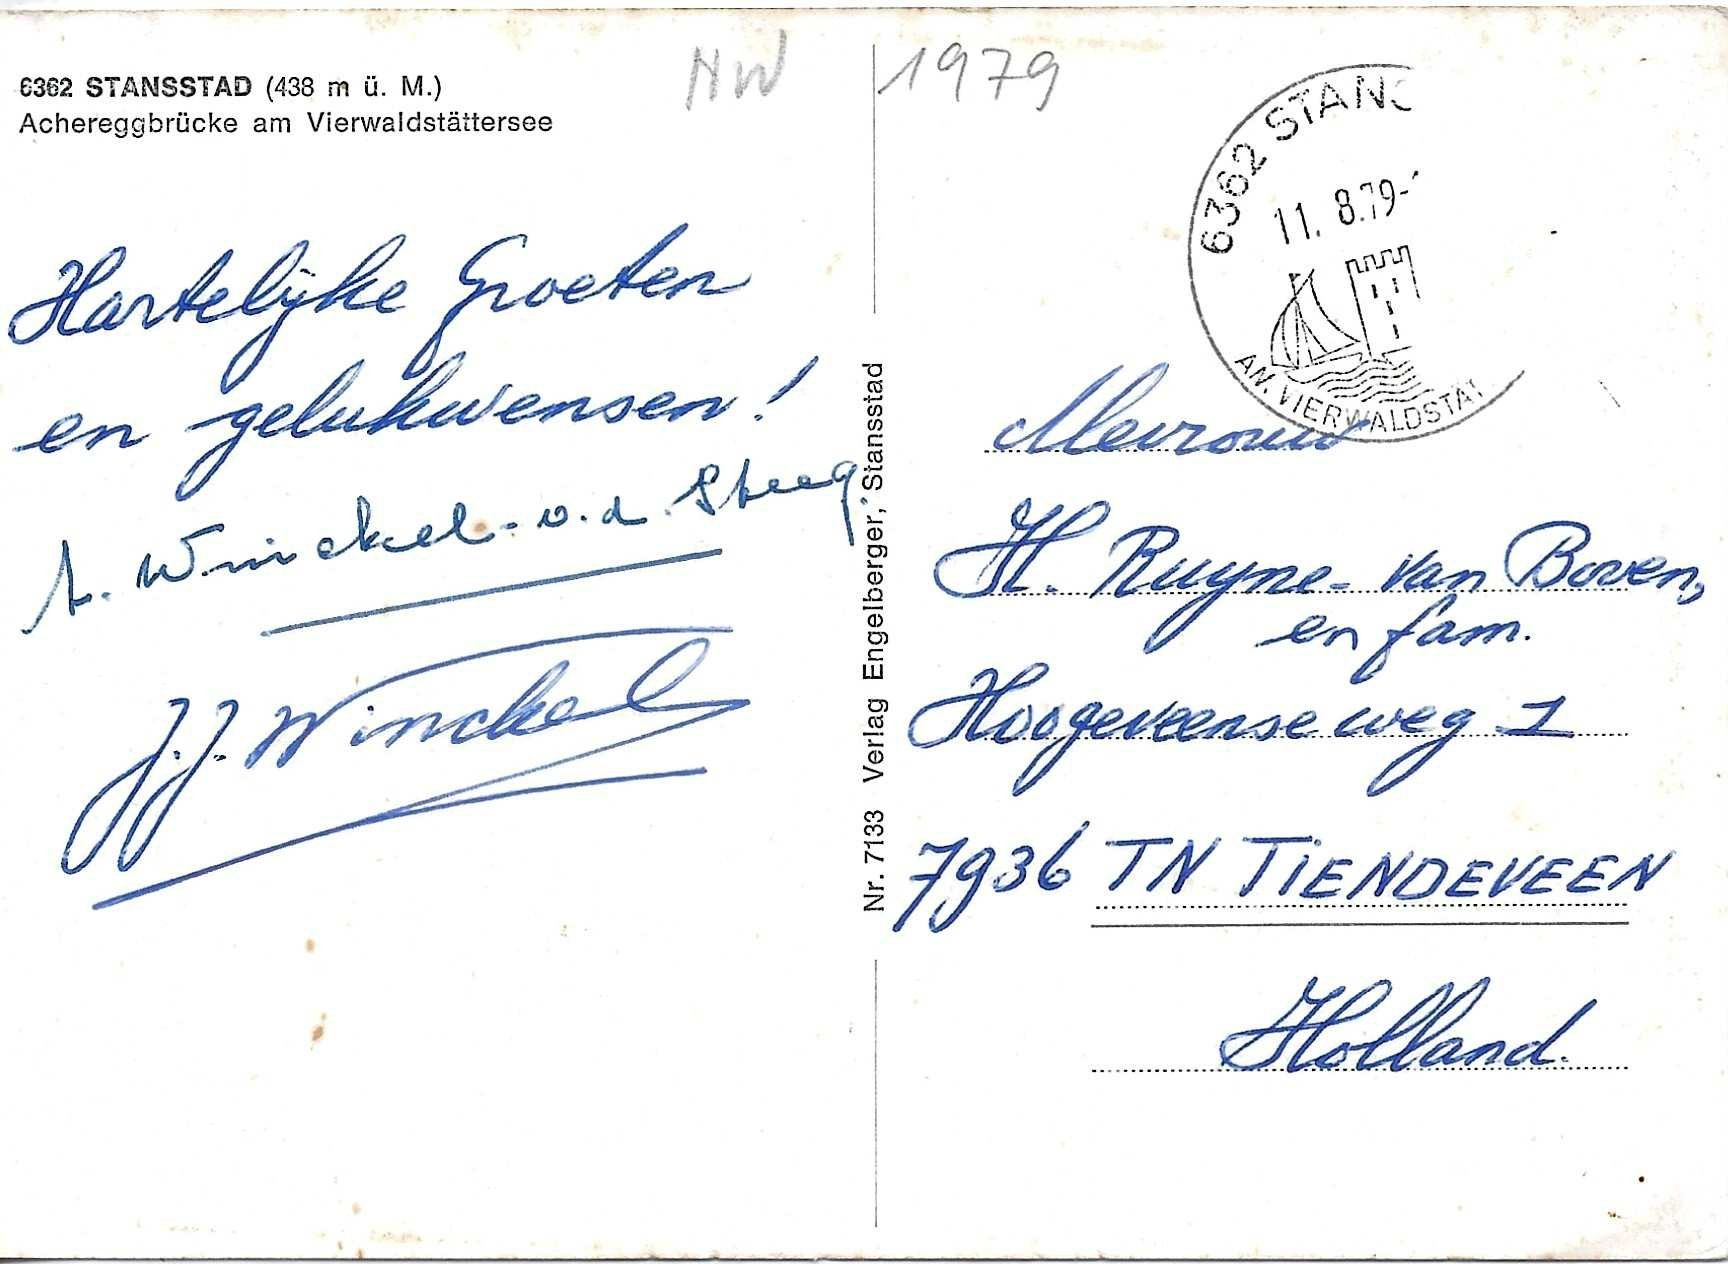 6362 STANSSTAD (438 m ü. M.)
Achereggbrücke am Vierwaldstättersee
NW 1979
6362 STANS
11. 8.79-
AM VIERWALDSTÄT
Hartelijke Groeten
en gelukwensen!
A. Winckel-v.d. Steeg.
J.J. Winckel
Nr. 7133 Verlag Engelberger, Stansstad
Mevrouw
H. Ruyne-van Boven,
en fam.
Hoogeveenseweg 1
7936 TN TIENDEVEEN
Holland.